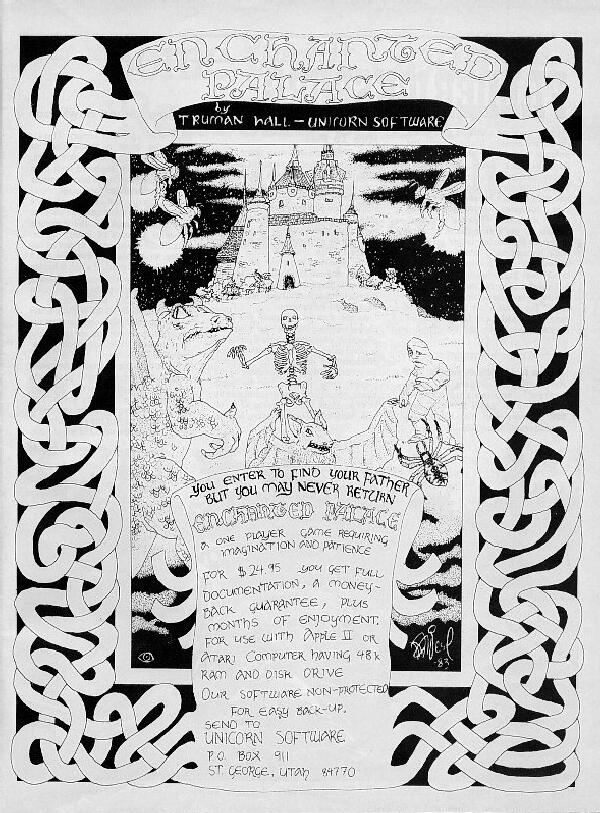 ENCHANTED
PALACE
by
TRUMAN HALL — UNICORN SOFTWARE
YOU ENTER TO FIND YOUR FATHER
BUT YOU MAY NEVER RETURN
ENCHANTED PALACE
A ONE PLAYER GAME REQUIRING
IMAGINATION AND PATIENCE
FOR $24.95 YOU GET FULL
DOCUMENTATION, A MONEY-
BACK GUARANTEE, PLUS
MONTHS OF ENJOYMENT.
FOR USE WITH APPLE II OR
ATARI COMPUTER HAVING 48K
RAM AND DISK DRIVE
OUR SOFTWARE NON-PROTECTED
FOR EASY BACK-UP.
SEND TO
UNICORN SOFTWARE
P.O. BOX 911
ST. GEORGE, UTAH 84770
-83